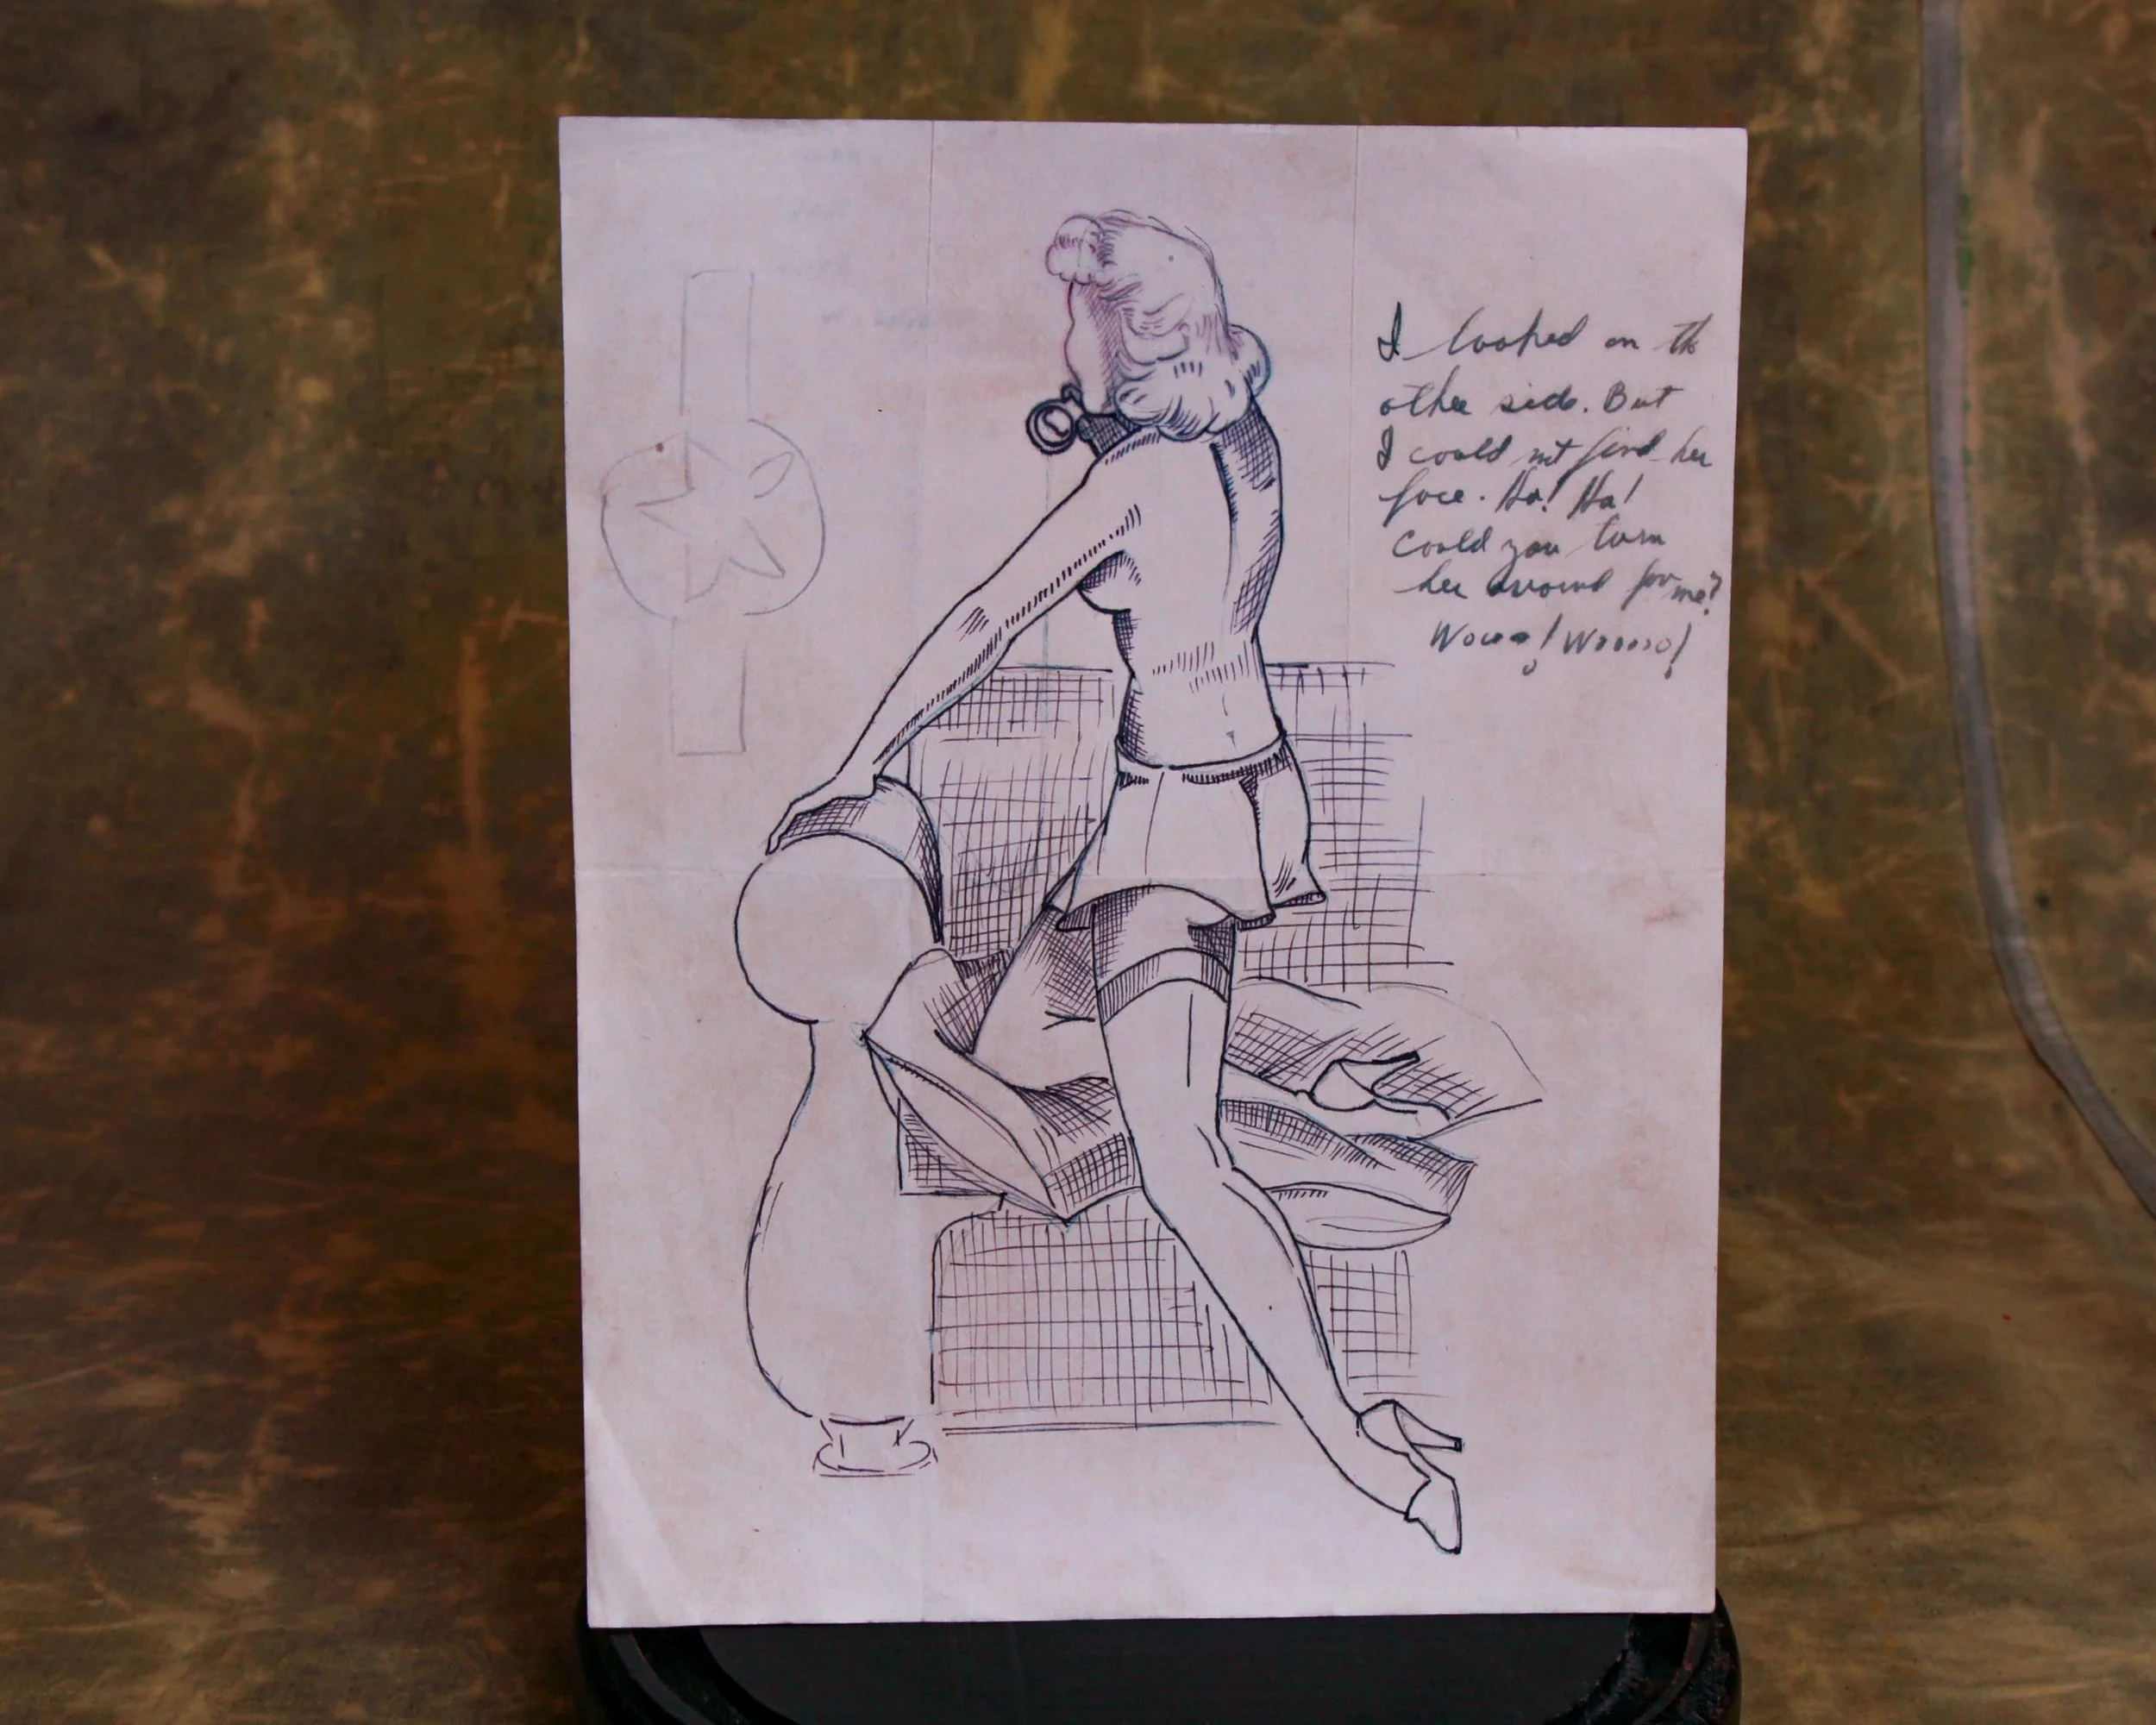 I looked on th
other side. But
I could not find her
face. Ha! Ha!
Could you turn
her around for me?
Wowoo! Wooooo!